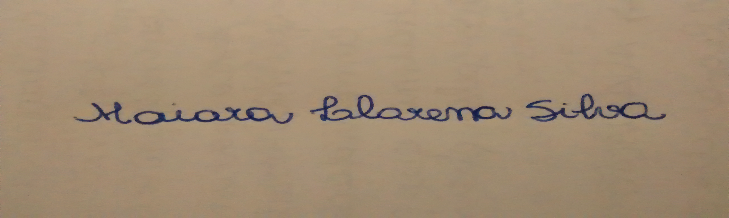 Maiara Lalarena Silva